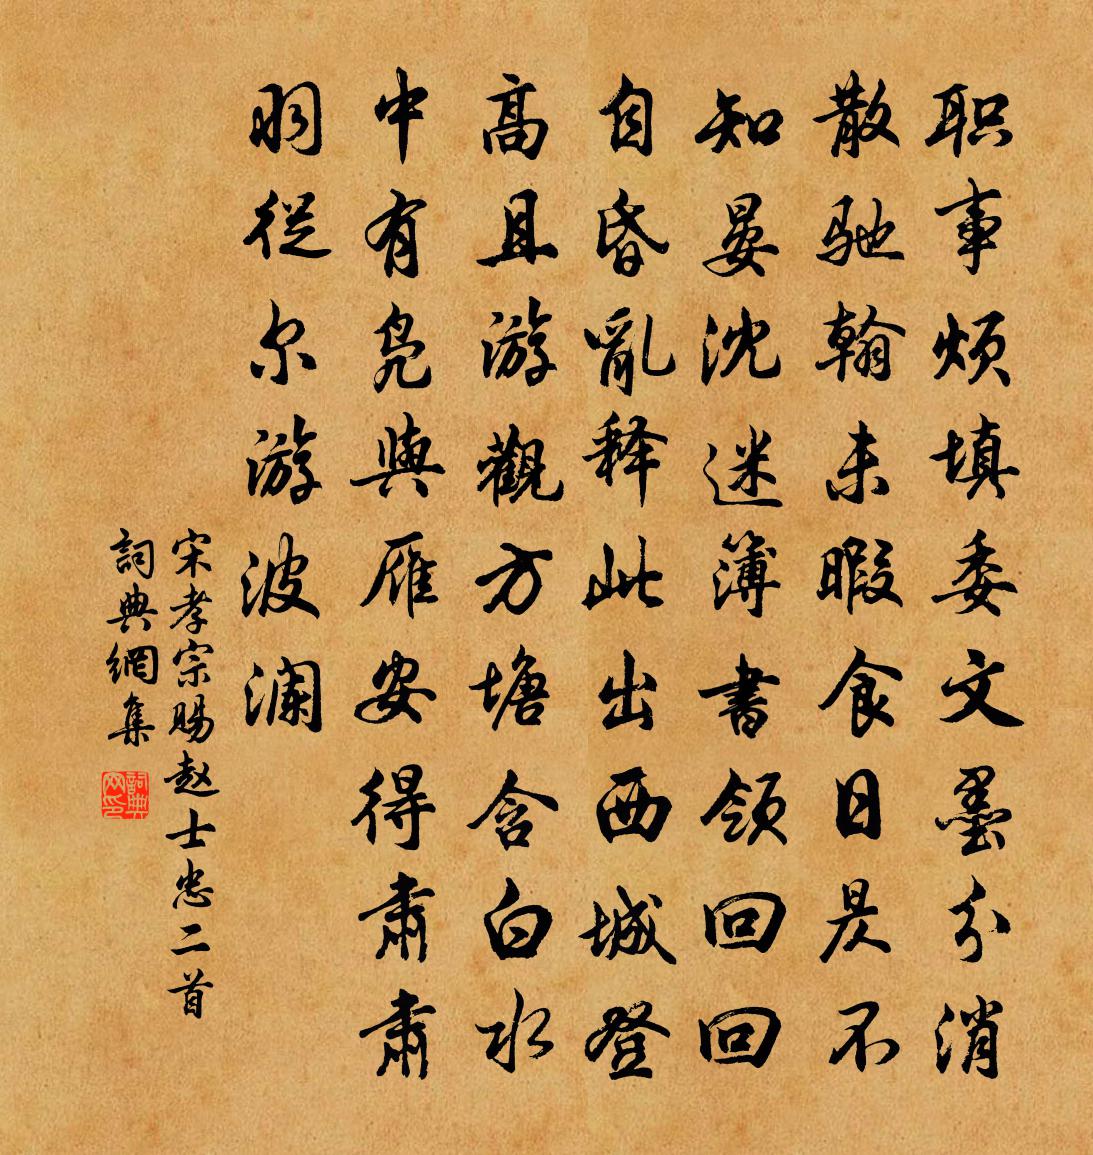 职事烦填委文墨分消
散驰翰未暇食日昃不
知晏沈迷簿書领回回
自昏亂释此出西城登
高且游觀方塘含白水
中有凫與雁安得肅肅
羽從尔游波澜
宋孝宗賜赵士忠二首
詞典網集
詞典网印